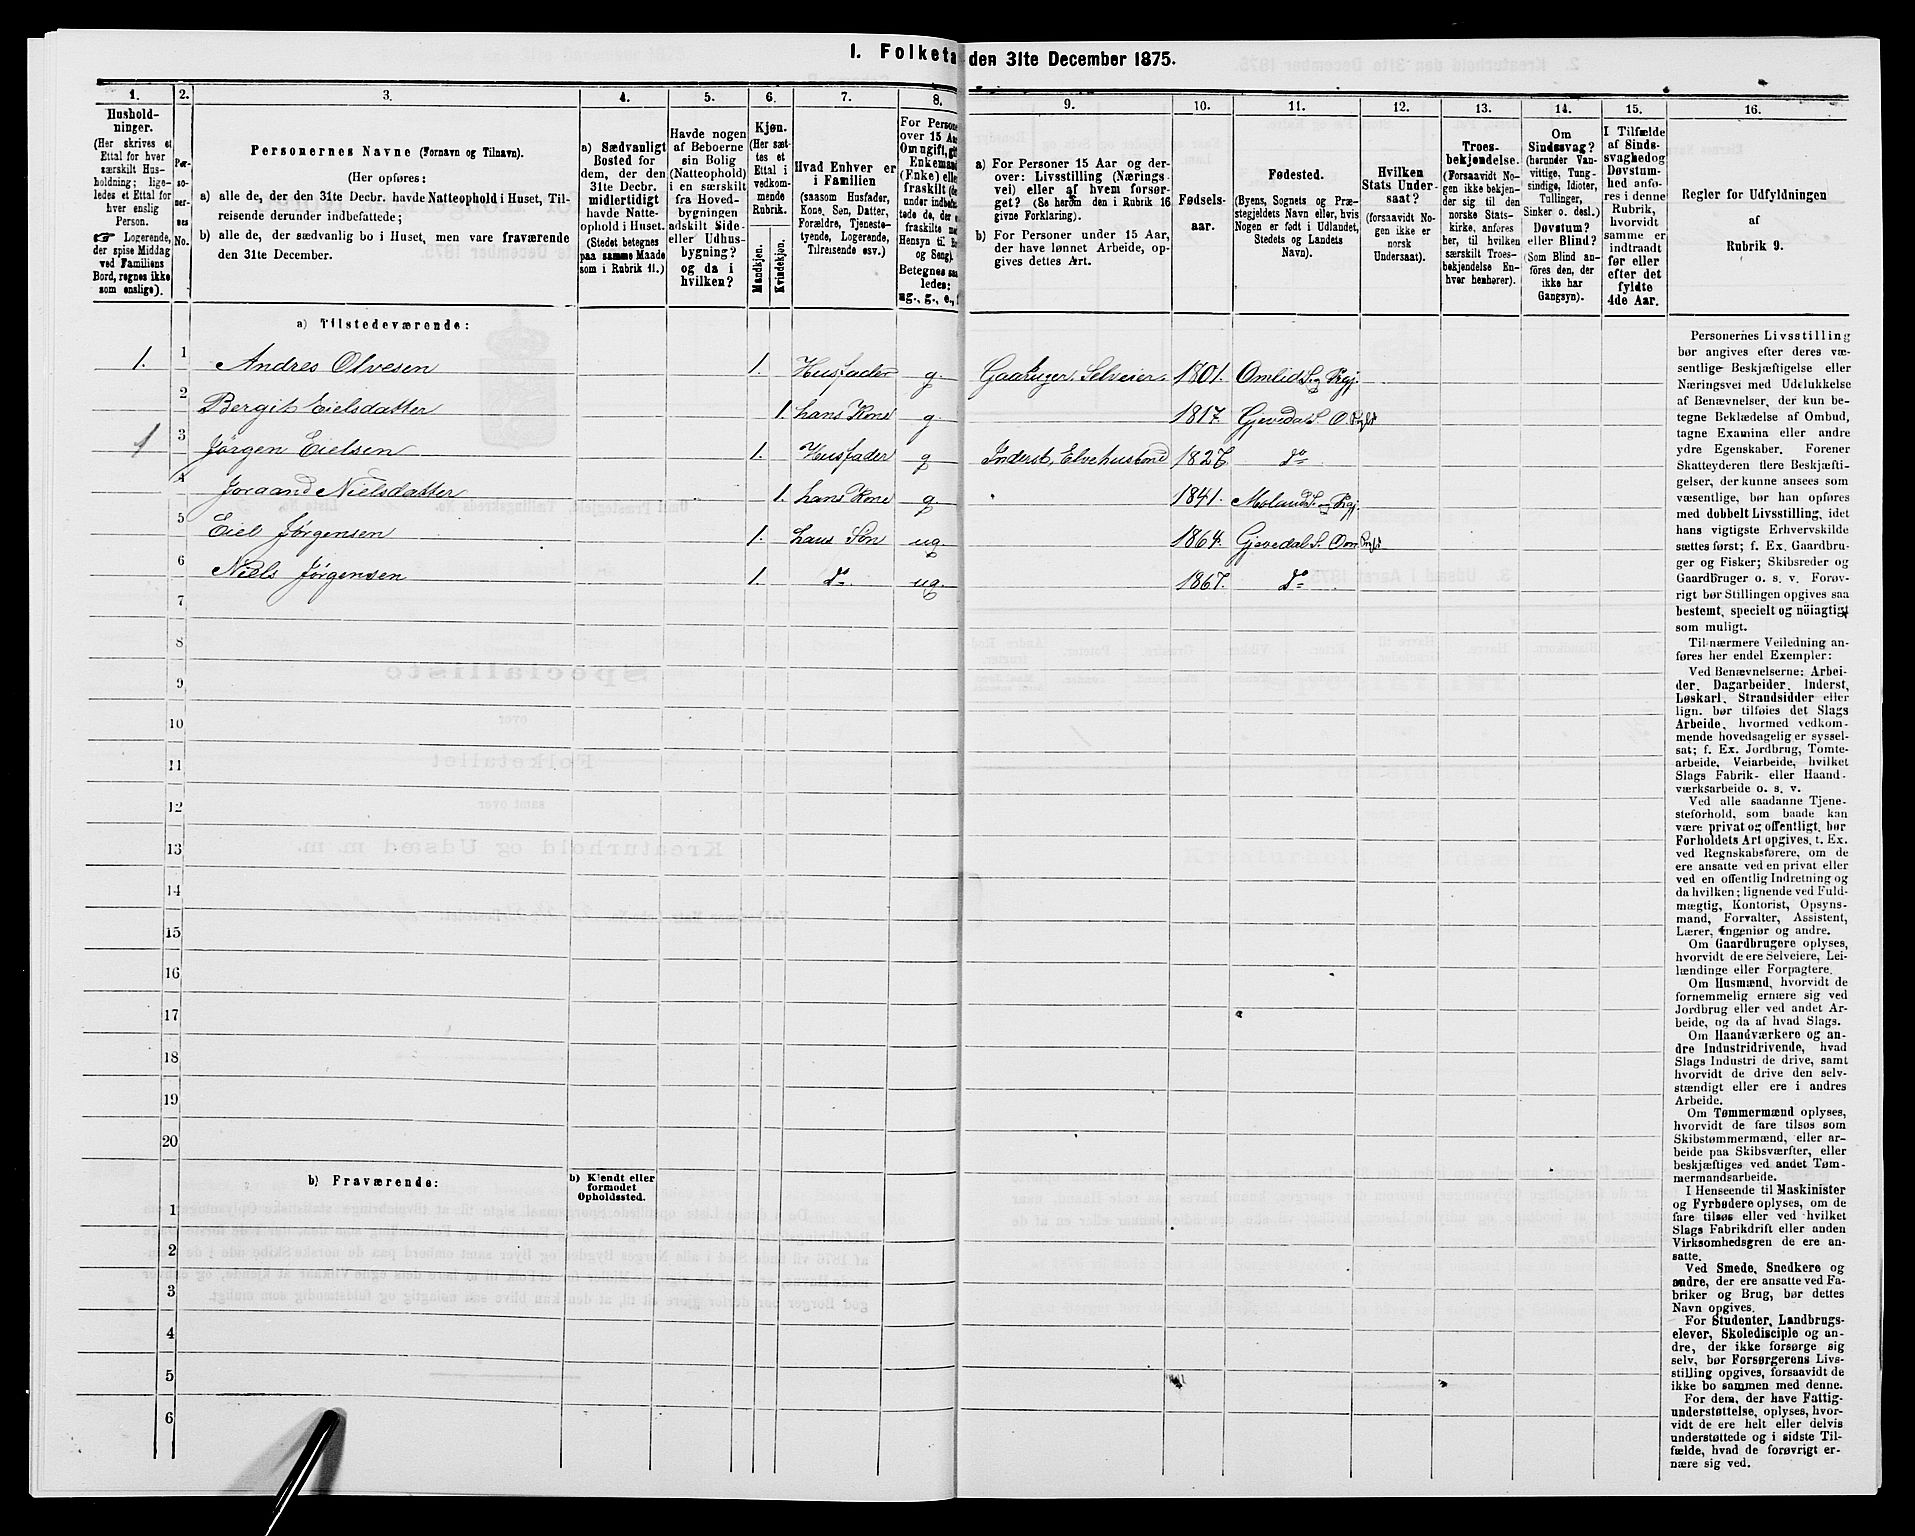 I. Folketa den 31te December 1875.
1. 2. 3. 4. 5. 6. 7. 8. 9. 10. 11. 12. 13. 14. 15. 16.
Hushold-
ninger.
(Her skrives et
Ettal for hver
særskilt Hus-
holdning; lige-
ledes et Ettal for
hver enslig
Person.
☞ Logerende,
der spise Middag
ved Familiens
Bord, regnes ikke
som enslige).
Per-
so-
ner-
nes
No.
Personernes Navne (Fornavn og Tilnavn).
(Her opføres:
a) alle de, der den 31te Decbr. havde Natteophold i Huset, Til-
reisende derunder indbefattede;
b) alle de, der sædvanlig bo i Huset, men vare fraværende
den 31te December.
a) Sædvanligt
Bosted for
dem, der den
31te Decbr.
midlertidigt
havde Natte-
ophold i Huset.
(Stedet betegnes
paa samme Maade
som i Rubrik 11.)
Havde nogen
af Beboerne
sin Bolig
(Natteophold)
i en særskilt
fra Hoved-
bygningen
adskilt Side-
eller Udhus-
bygning?
og da i
hvilken?
Kjøn.
(Her sæt-
tes et
Ettal i
vedkom-
mende
Rubrik.
Mandkjøn.
Kvindekjøn.
Hvad Enhver er
i Familien
(saasom Husfader,
Kone, Søn, Datter,
Forældre, Tjeneste-
tyende, Logerende,
Tilreisende osv.)
For Persone
over 15 Aa
Om ugift, gi
Enkemand
(Enke) elle
fraskilt (de
under indbef
tede de, der e
fraskilte me
Hensyn til Bo
og Seng).
Betegnes saa
ledes:
ug., g., e., f
a) For Personer 15 Aar og der-
over: Livsstilling (Nærings-
vei) eller af hvem forsør-
get? (Se herom den i Rubrik 16
givne Forklaring).
b) For Personer under 15 Aar,
der have lønnet Arbeide, op-
gives dettes Art.
Fødsels-
aar.
Fødested.
(Byens, Sognets og Præ-
stegjeldets Navn eller, hvis
Nogen er født i Udlandet,
Stedets og Landets
Navn).
Hvilken
Stats Under-
saat?
(forsaavidt No-
gen ikke er
norsk
Undersaat).
Troes-
bekjendelse.
(Forsaavidt No-
gen ikke bekjen-
der sig til den
norske Stats-
kirke, anføres
her, til hvilken
særskilt Troes-
bekjendelse En-
hver henhører).
Om
Sindssvag?
(herunder Van-
vittige, Tung-
sindige, Idioter,
Tullinger,
Sinker o. desl.)
Døvstum?
eller Blind?
(Som Blind an-
føres den, der
ikke har
Gangsyn).
I Tilfælde
af Sinds-
svaghed og
Døvstum-
hed anfø-
res i denne
Rubrik,
hvorvidt
samme er
indtraadt
før eller
efter det
fyldte
4de Aar.
Regler for Udfyldningen
af
Rubrik 9.
a) Tilstedeværende:
1. 1 Andres Olvesen 1. Husfader g. Gaarbruger, Selveier 1801. Omlid S. og Prgj.
2 Bergit Eielsdatter 1. hans Kone g 1817. Gjevedal S. O. Prgld
1 3 Jørgen Eielsen 1. Husfader g Inderst, 1827 do
4 Joraand Nielsdatter 1. hans Kone g 1841. Moland S. og Prgj.
5 Eiel Jørgensen 1. hans Søn ug. 1864. Gjevedal S. Om Prgld
6 Niels Jørgensen 1. do ug. 1867. do
7
8
9
10
11
12
13
14
15
16
17
18
19
20
b) Fraværende:
b) Kjendt eller
formodet
Opholdssted.
1
2
3
4
5
6
Personernes Livsstilling
bør angives efter deres væ-
sentlige Beskjæftigelse eller
Næringsvei med Udelukkelse
af Benævnelser, der kun be-
tegne Beklædelse af Ombud,
tagne Examina eller andre
ydre Egenskaber. Forener
Skatteyderen flere Beskjæfti-
gelser, der kunne ansees som
væsentlige, bør han opføres
med dobbelt Livsstilling, idet
hans vigtigste Erhvervskilde
sættes først; f. Ex. Gaardbru-
ger og Fisker; Skibsreder og
Gaardbruger o. s. v. Forøv-
rigt bør Stillingen opgives saa
bestemt, specielt og nöiagtigt
som muligt.
Til nærmere Veiledning an-
føres her endel Exempler:
Ved Benævnelserne: Arbei-
der, Dagarbeider, Inderst,
Løskarl, Strandsidder eller
lign. bør tilføies det Slags
Arbeide, hvormed vedkom-
mende hovedsagelig er syssel-
sat; f. Ex. Jordbrug, Tomte-
arbeide, Veiarbeide, hvilket
Slags Fabrik- eller Haand-
værksarbeide o. s. v.
Ved alle saadanne Tjene-
steforhold, som baade kan
være privat og offentligt, bør
Forholdets Art opgives, t. Ex.
ved Regnskabsførere, om de
ere ansatte ved en privat eller
ved en offentlig Indretning og
da hvilken; lignende ved Fuld-
mægtig, Kontorist, Opsyns-
mand, Forvalter, Assistent,
Lærer, Ingeniør og andre.
Om Gaardbrugere oplyses,
hvorvidt de ere Selveiere, Lei-
lændinge eller Forpagtere.
Om Husmænd, hvorvidt de
fornemmelig ernære sig ved
Jordbrug eller ved andet Ar-
beide, og da af hvad Slags.
Om Haandværkere og an-
dre Industridrivende, hvad
Slags Industri de drive, samt
hvorvidt de drive den selv-
stændigt eller ere i andres
Arbeide.
Om Tømmermænd oplyses,
hvorvidt de fare tilsøs som
Skibstømmermænd, eller ar-
beide paa Skibsværfter, eller
beskjæftiges ved andet Tøm-
mermandsarbeide.
I Henseende til Maskinister
og Fyrbødere oplyses, om de
fare tilsøs eller ved hvilket
Slags Fabrikdrift eller anden
Virksomhedsgren de ere an-
satte.
Ved Smede, Snedkere og
andre, der ere ansatte ved Fa-
briker og Brug, bør dettes
Navn opgives.
For Studenter, Landbrugs-
elever, Skoledisciple og an-
dre, der ikke forsørge sig
selv, bør Forsørgerens Livs-
stilling opgives, forsaavidt de
ikke bo sammen med denne.
For dem, der have Fattig-
understøttelse, oplyses, hvor-
vidt de ere helt eller delvis
understøttede og i sidste Til-
fælde, hvad de forøvrigt er-
nære sig ved.